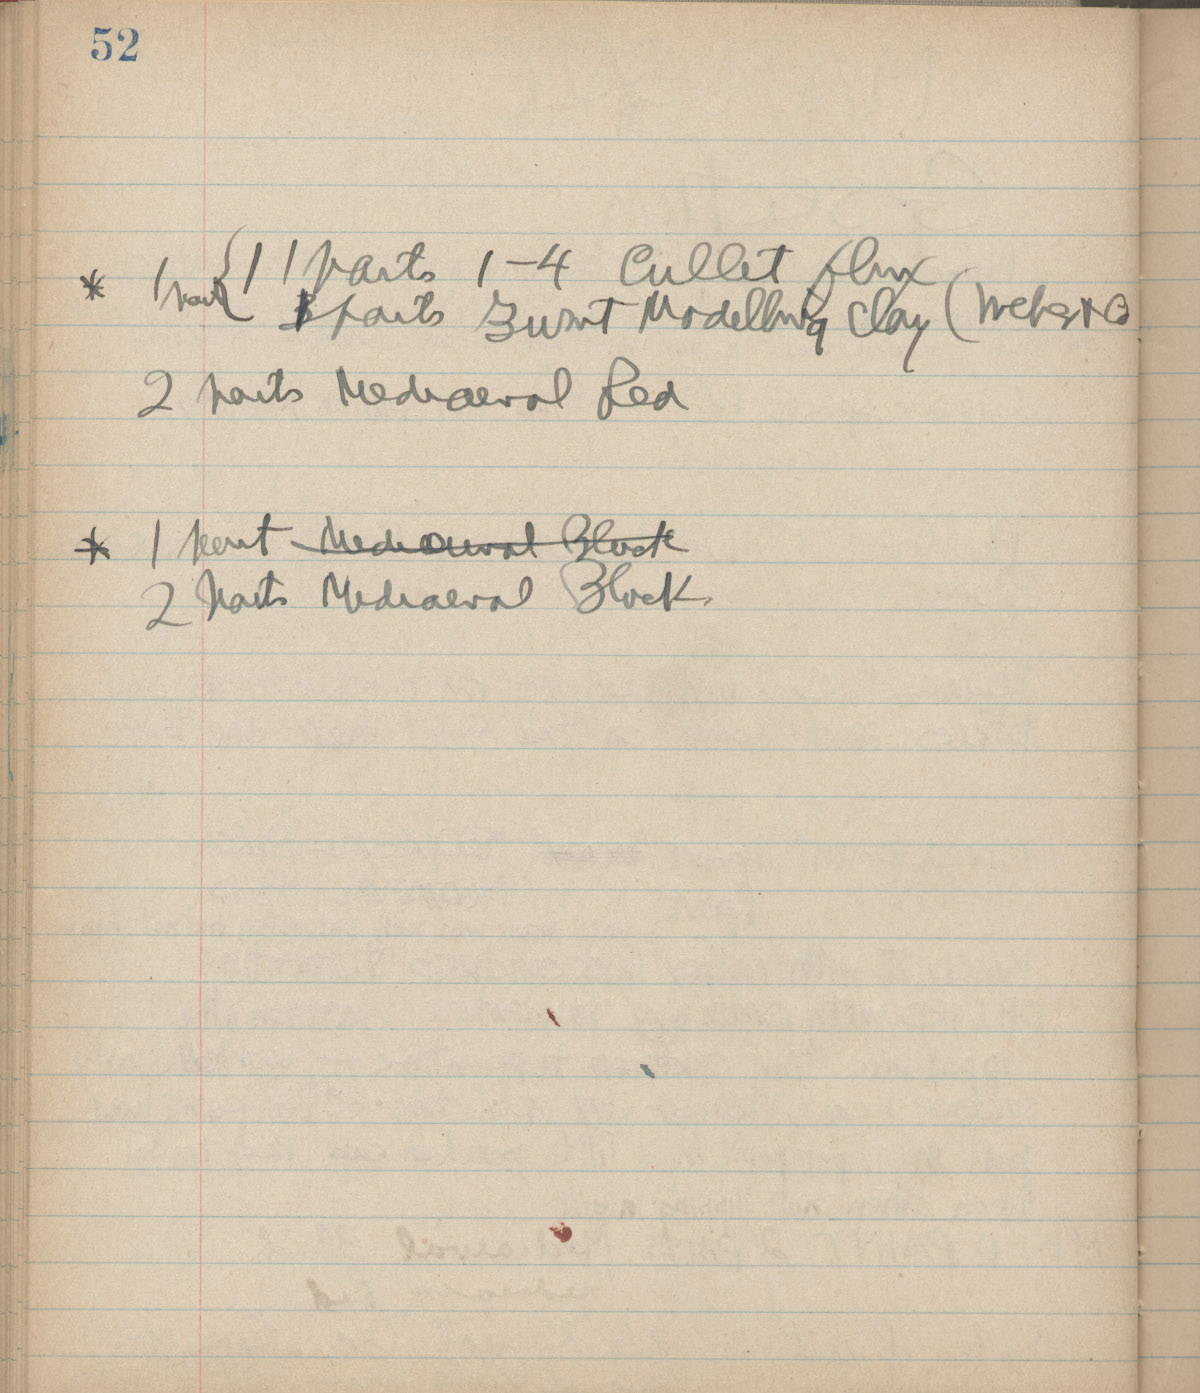 52
* 1 part { 11 parts 1-4 Cullet flux
1 parts Burnt Modelling Clay (
2 parts Mediaeval Red
* 1 part Mediaeval Black
2 parts Mediaeval Black